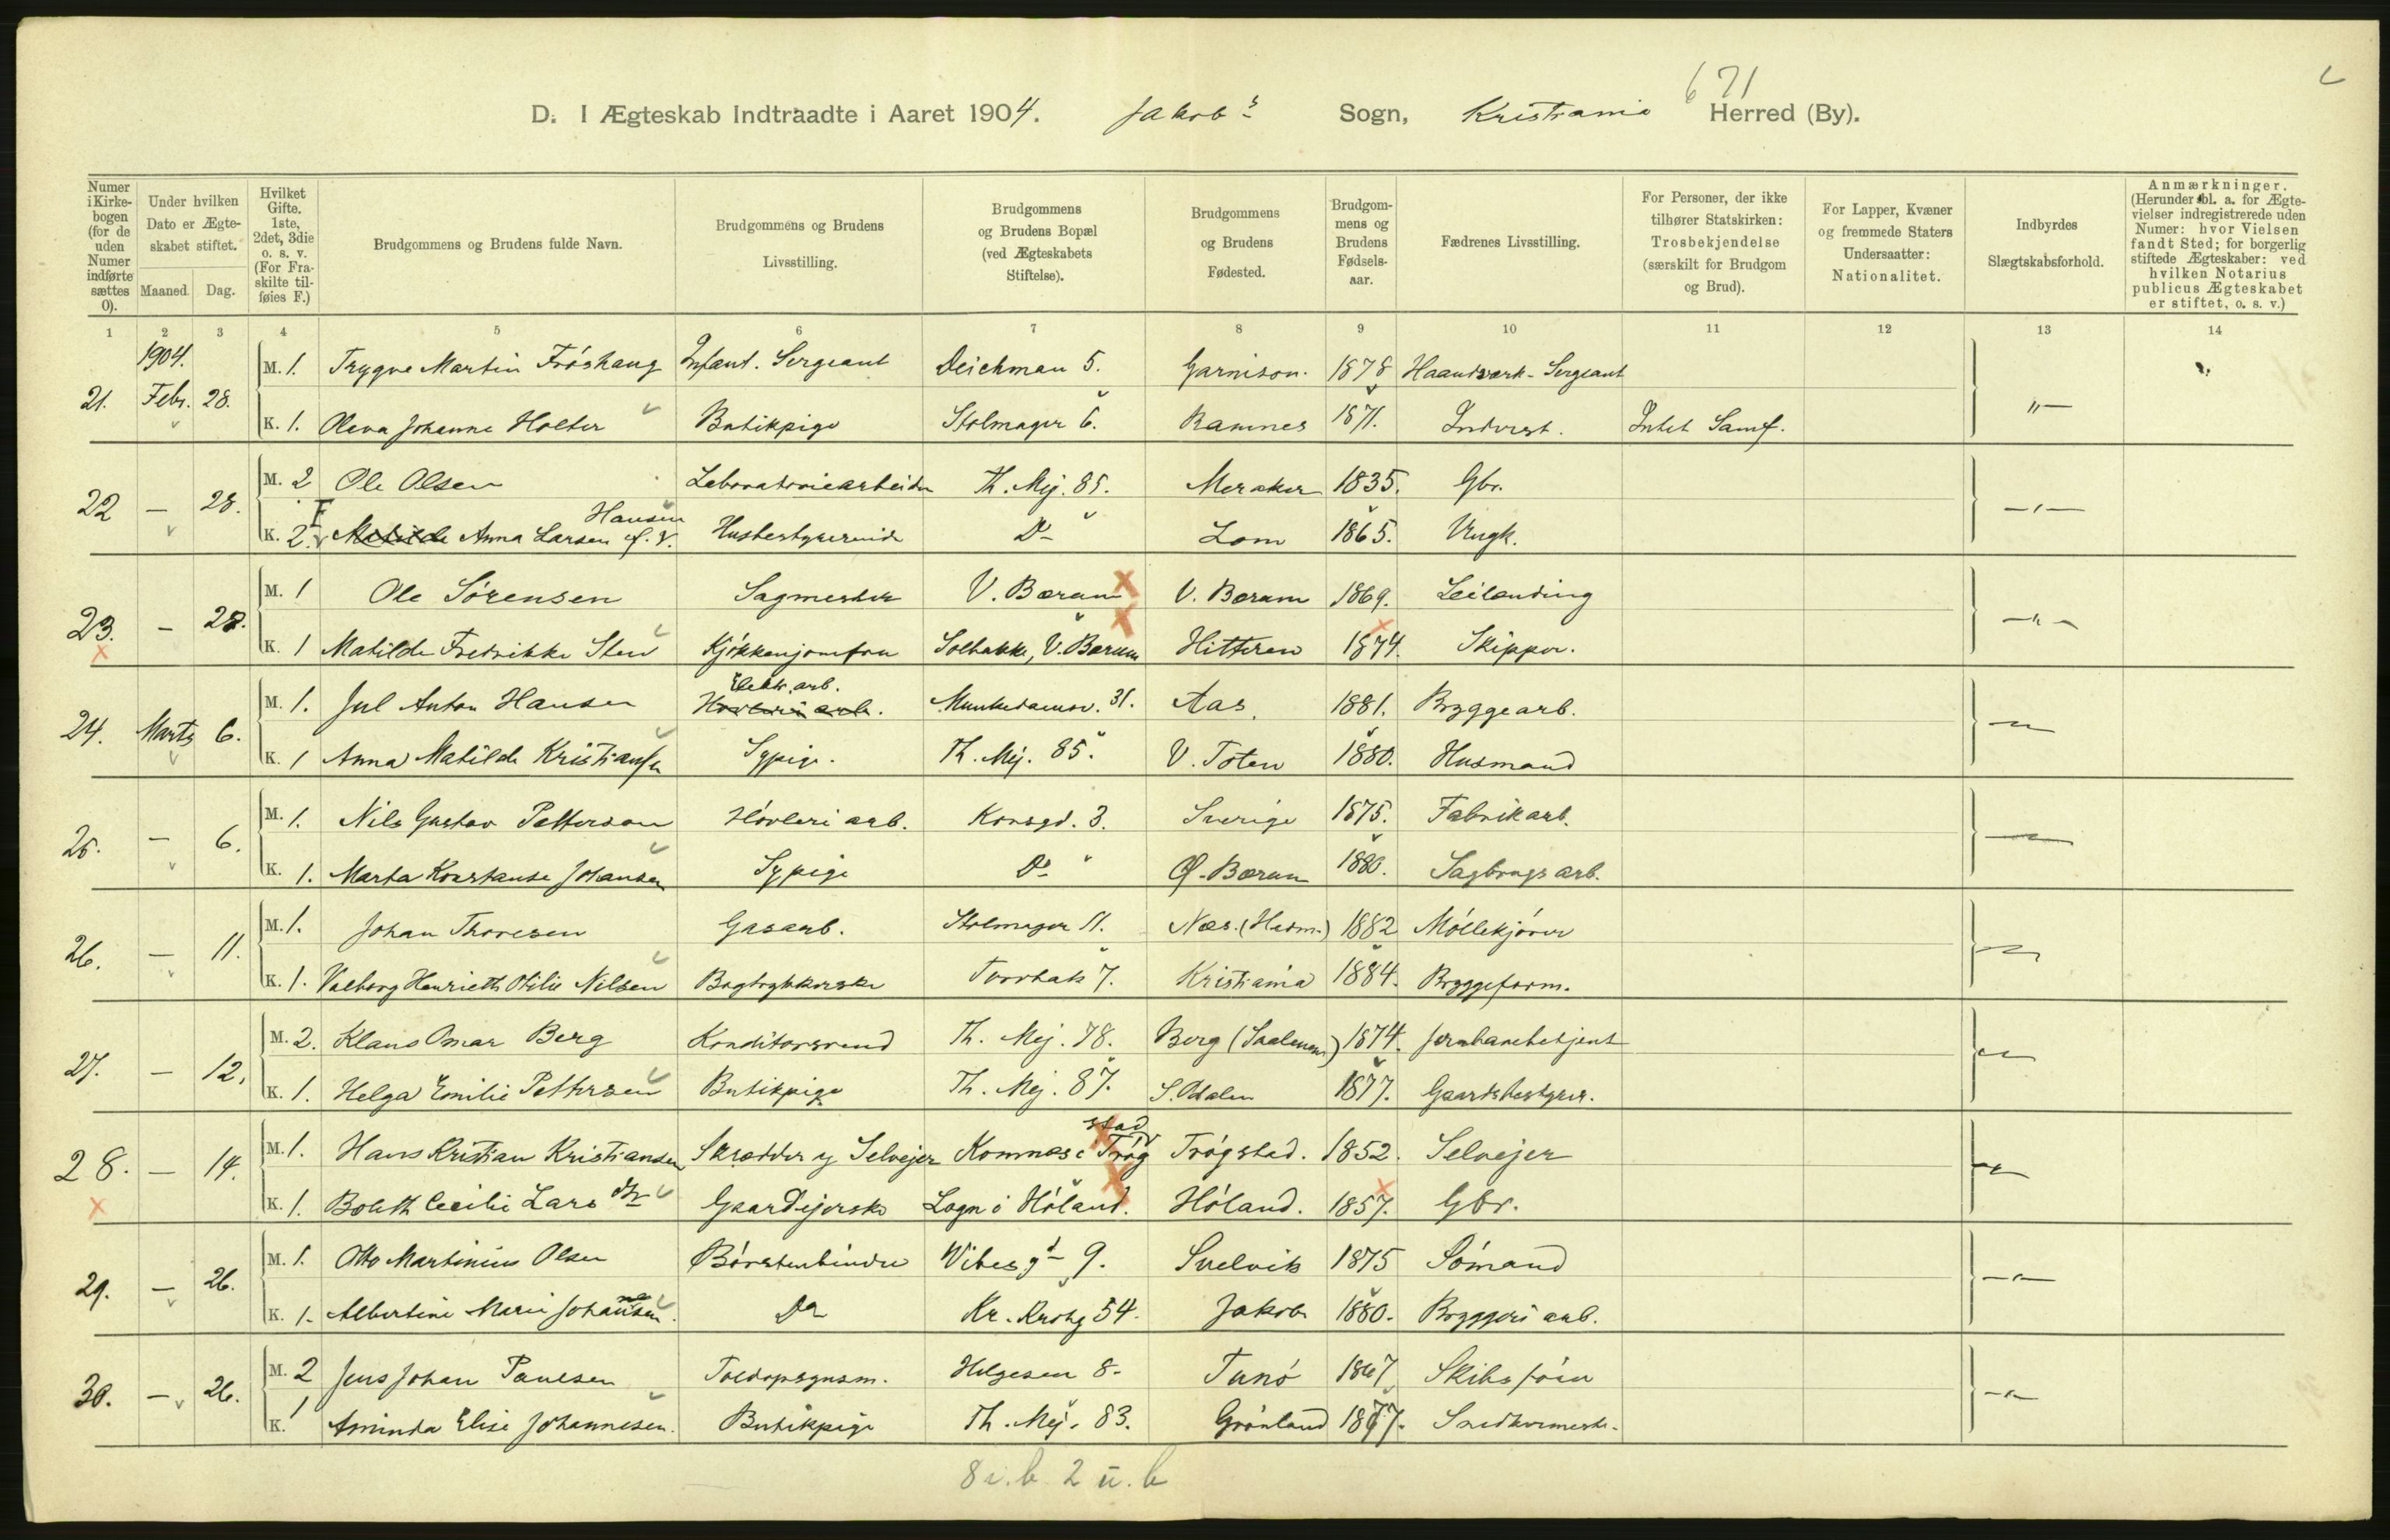 671
D. I Ægteskab Indtraadte i Aaret 1904. Jakobs Sogn, Kristiania Herred (By).
Numer i Kirkebogen (for de uden Numer indførte sættes 0).
Under hvilken Dato er Ægteskabet stiftet.
Maaned. Dag.
Hvilket Gifte. 1ste, 2det, 3die o. s. v. (For Fraskilte tilføies F.)
Brudgommens og Brudens fulde Navn.
Brudgommens og Brudens Livsstilling.
Brudgommens og Brudens Bopæl (ved Ægteskabets Stiftelse).
Brudgommens og Brudens Fødested.
Brudgommens og Brudens Fødselsaar.
Fædrenes Livsstilling.
For Personer, der ikke tilhører Statskirken: Trosbekjendelse (særskilt for Brudgom og Brud).
For Lapper, Kvæner og fremmede Staters Undersaatter: Nationalitet.
Indbyrdes Slægtskabsforhold.
Anmærkninger. (Herunder bl. a. for Ægtevielser indregistrerede uden Numer: hvor Vielsen fandt Sted; for borgerlig stiftede Ægteskaber: ved hvilken Notarius publicus Ægteskabet er stiftet, o. s. v.)
1 2 3 4 5 6 7 8 9 10 11 12 13 14
1904.
M. 1. Trygve Martin Fröshaug Infant. Sergeant Deichman 5. Garnison. 1878 Haandværk-Sergeant
21. Febr. 28.
K. 1. Oleva Johanne Holter Butikpige Stolmager 6. Ramnes 1871. Inderst. Intet Samf.
M. 2 Ole Olsen Laboratoriearbeider Th. Mej. 85. Meraker 1835. Gbr.
22 — 28.
F Hansen
K. 2. Matilde Anna Larsen f. Husbestyrerinde Do Lom 1865. Ungk.
M. 1 Ole Sörensen Sagmester V. Bærum V. Bærum 1869. Leilending
23. — 28.
K. 1 Matilde Fredrikke Sten Kjökkenjomfru Solbakke, V. Bærum Hitteren 1874. Skipper.
Elektr. arb.
M. 1. Jul Anton Hansen Høvleri arb. Munkedamsv. 31. Aas 1881. Bryggearb.
24. Marts 6.
K. 1 Anna Matilde Kristiansen Sypige. Th. Mej. 85. V. Toten 1880. Husmand
M. 1. Nils Gustav Petterson Hövleri arb. Korsgd. 3. Sverige 1875. Fabrikarb.
25. — 6.
K. 1. Marta Konstanse Johansen Sypige Do Ø. Bærum 1880. Sagbrugsarb.
M. 1. Johan Thoresen Gasarb. Stolmager 11. Næs. (Hedm.) 1882 Möllekjörer
26. — 11.
K. 1. Valborg Henriette Otilie Nilsen Bogtrykkerske Torvbak 7. Kristiania 1884. Bryggeform.
M. 2. Klaus Omar Berg Konditorsvend Th. Mej. 78. Berg (Smalenene) 1874. Jernbanebetjent
27. — 12.
K. 1. Helga Emilie Pettersen Butikpige Th. Mej. 87. S. Odalen 1877. Gaardsbestyrer.
stad
M. 1. Hans Kristian Kristiansen Skrædder og Selvejer Kommæs i Trög Trögstad. 1852. Selvejer
28. — 14.
K. 1. Bolette Cecilie Lars dtr Gaardejerske Logn i Höland. Höland. 1857. Gbr.
M. 1. Otto Martinius Olsen Börstenbinder Vibesgd 9. Svelvik 1875 Sömand
29. — 26.
K. 1. Albertine Marie Johansen. Do Kr. Krohg 54. Jakob 1880. Bryggeri arb.
M. 2 Jens Johan Paulsen Toldopsynsm. Helgesen 8. Tunö 1867 Skibsförer
30. — 26.
K. 1 Aminda Elise Johannesen. Butikpige Th. Mej. 83. Grönland 1877. Snedkermester.
8 i.b 2 u.b